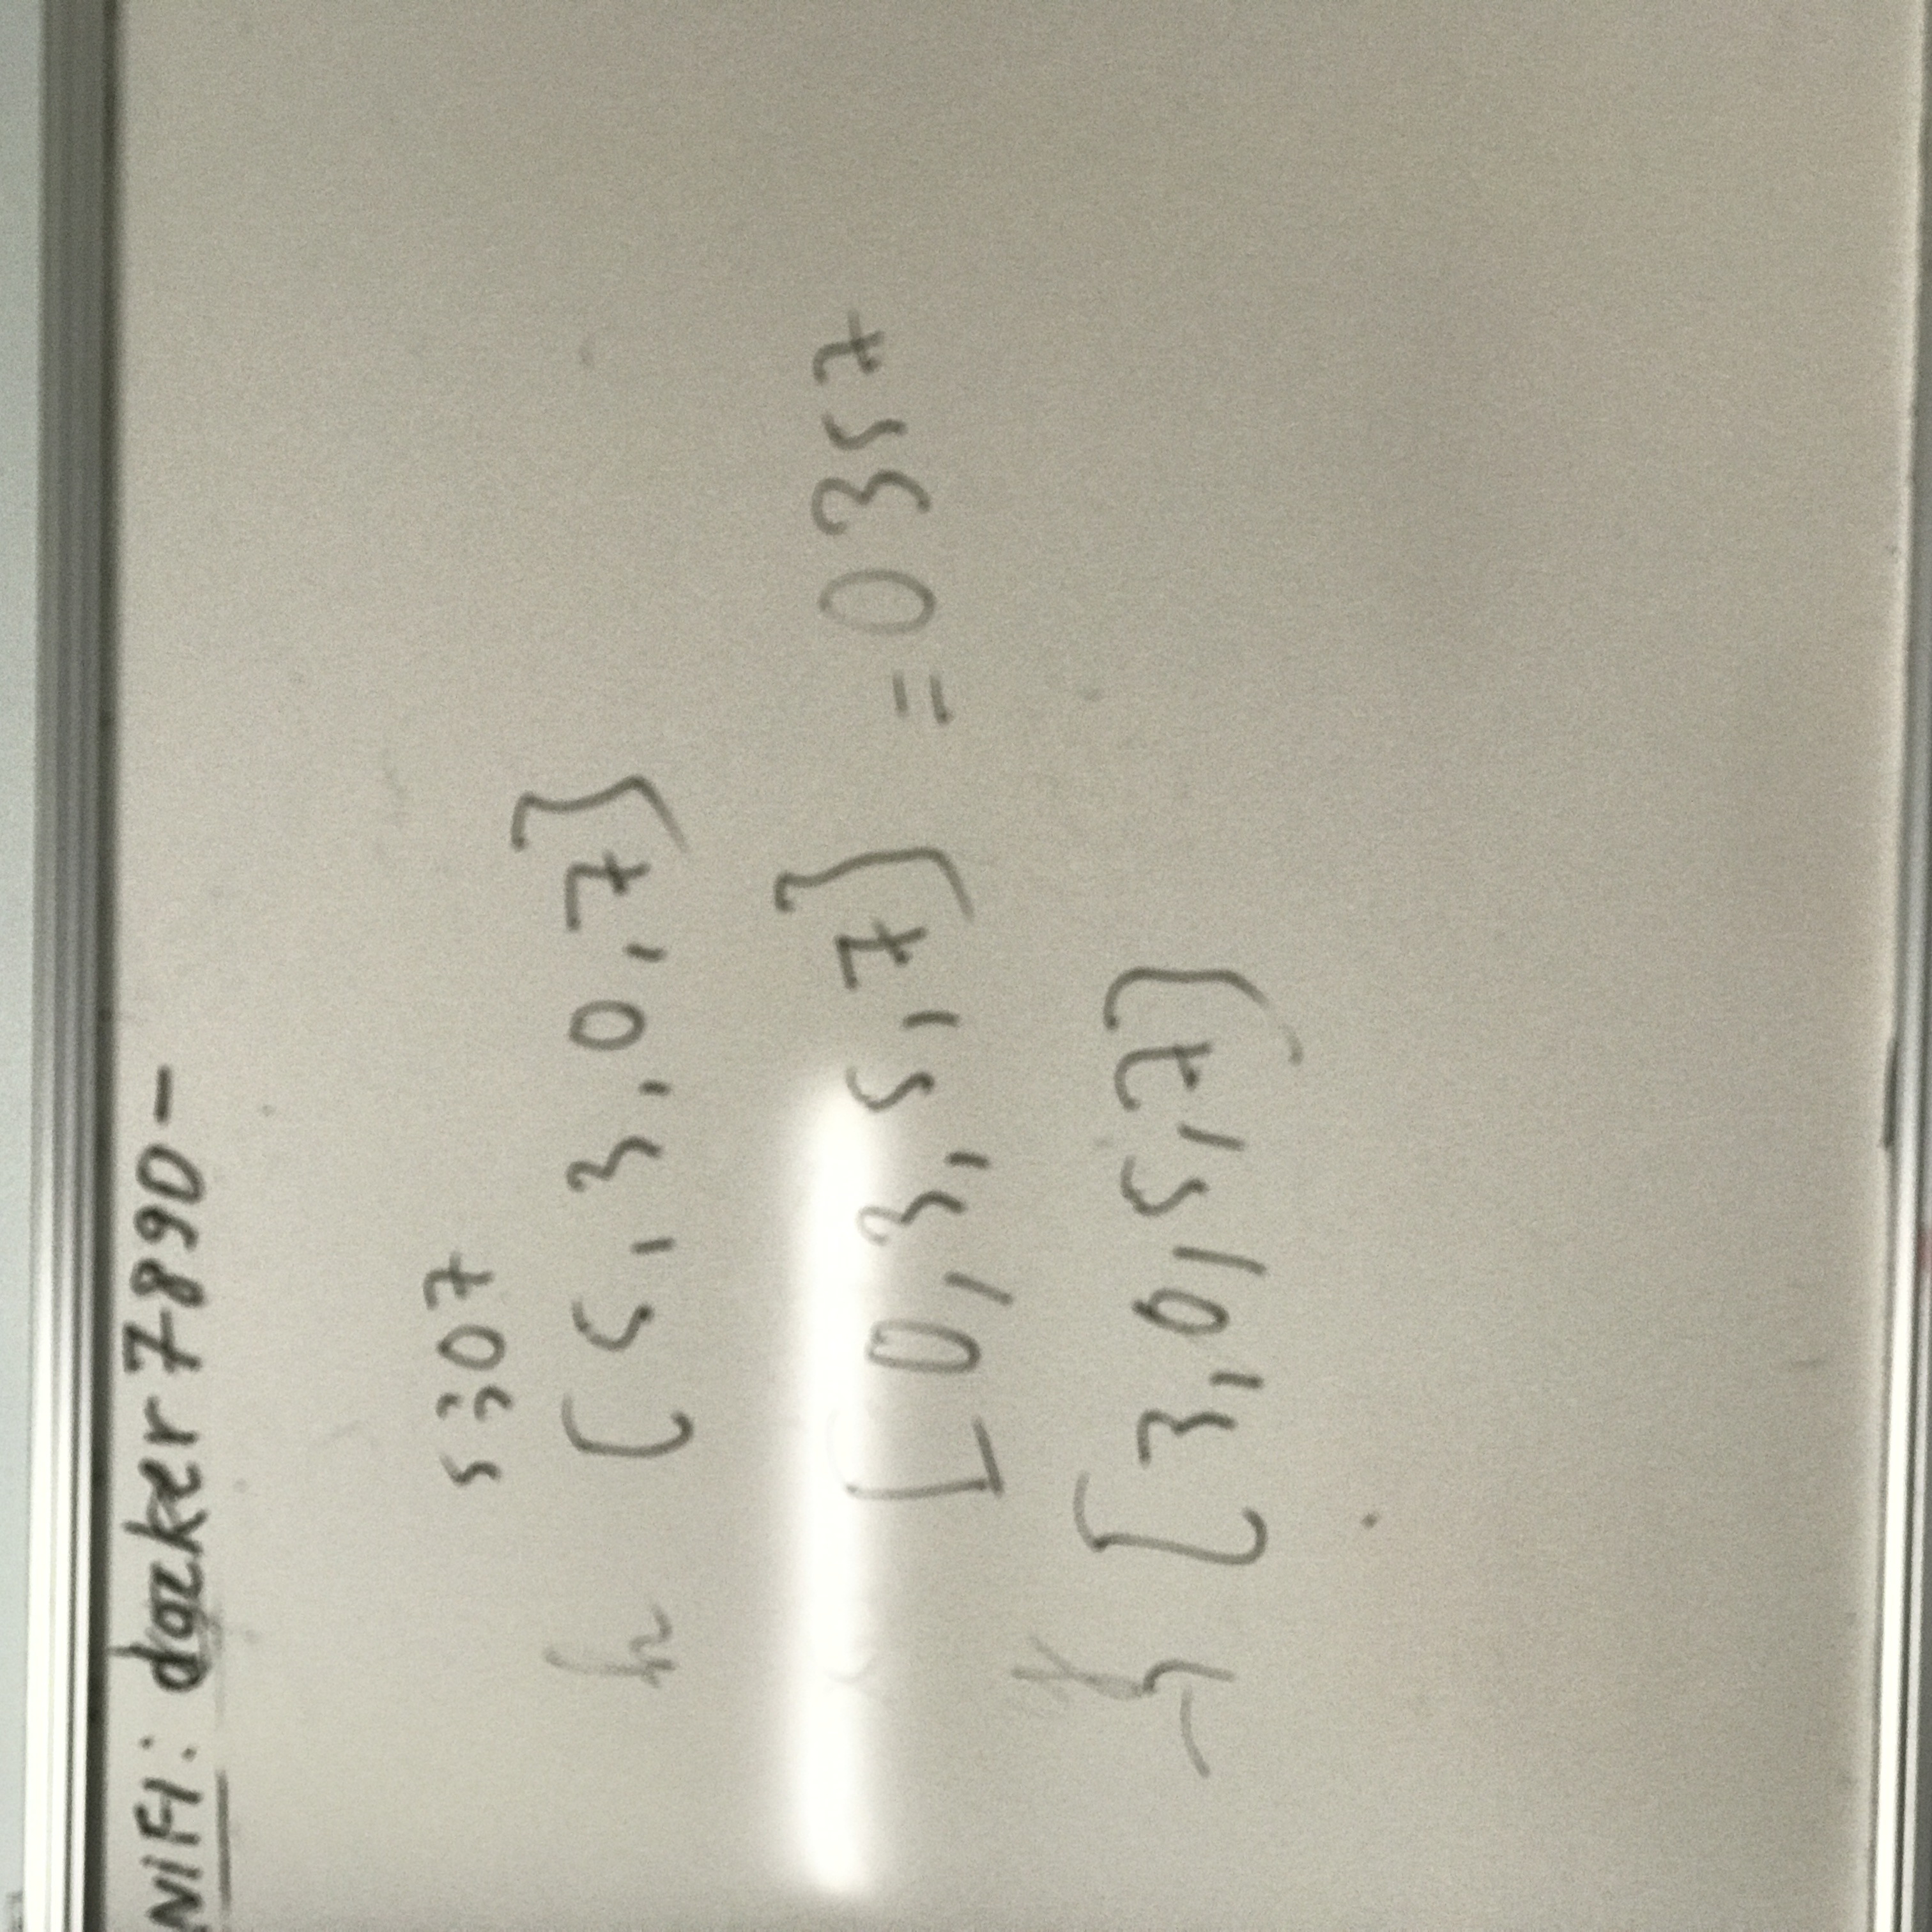 NiFi: docker7890-
5307
h [5,3,0,7]
[0,3,5,7] = 0357
→ [3,0,5,7]